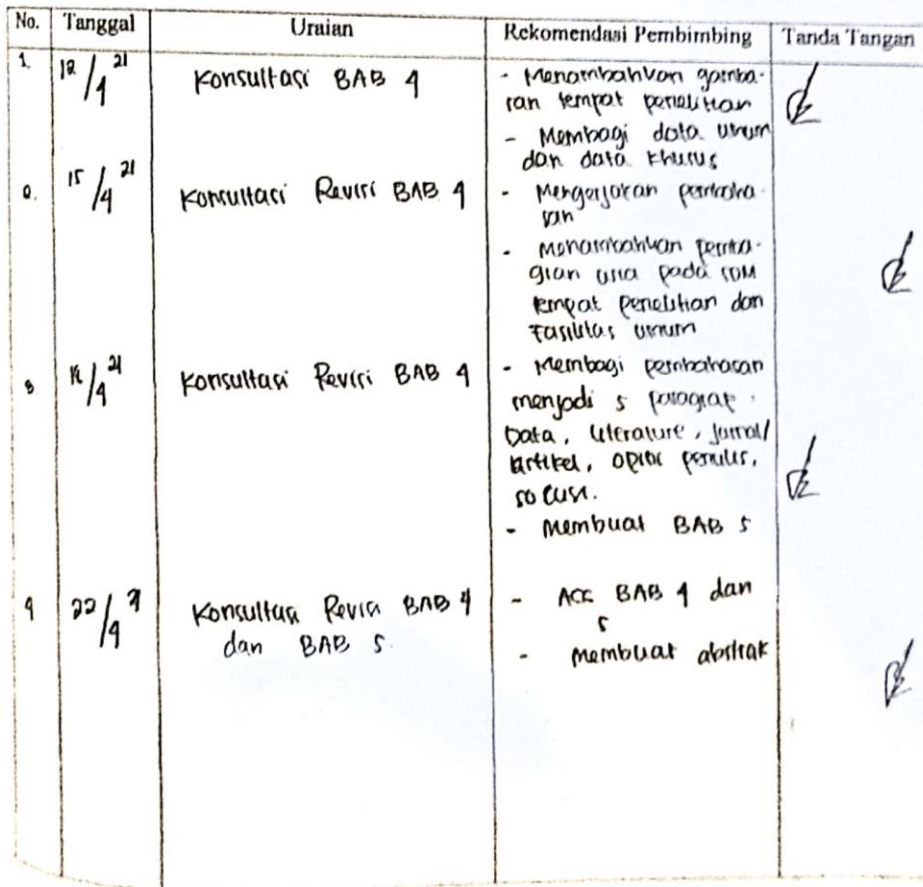 No. Tanggal Uraian Rekomendasi Pembimbing Tanda Tangan
1. 12/4 21 Konsultasi BAB 4 - Menambahkan gamba-
ran tempat penelitian
- Membagi data umum
dan data khusus
2. 15/4 21 Konsultasi Revisi BAB 4 - Mengerjakan pembaha-
san
- Menambahkan pemba-
gian usia pada SDM
tempat penelitian dan
Fasilitas umum
3 /4 21 Konsultasi Revisi BAB 4 - Membagi pembahasan
menjadi 5 paragraf.
Data, literature, jurnal/
artikel, opini penulis,
solusi.
- Membuat BAB 5
4 22/4 21 Konsultasi Revisi BAB 4 - ACC BAB 4 dan
dan BAB 5. 5
- membuat abstrak